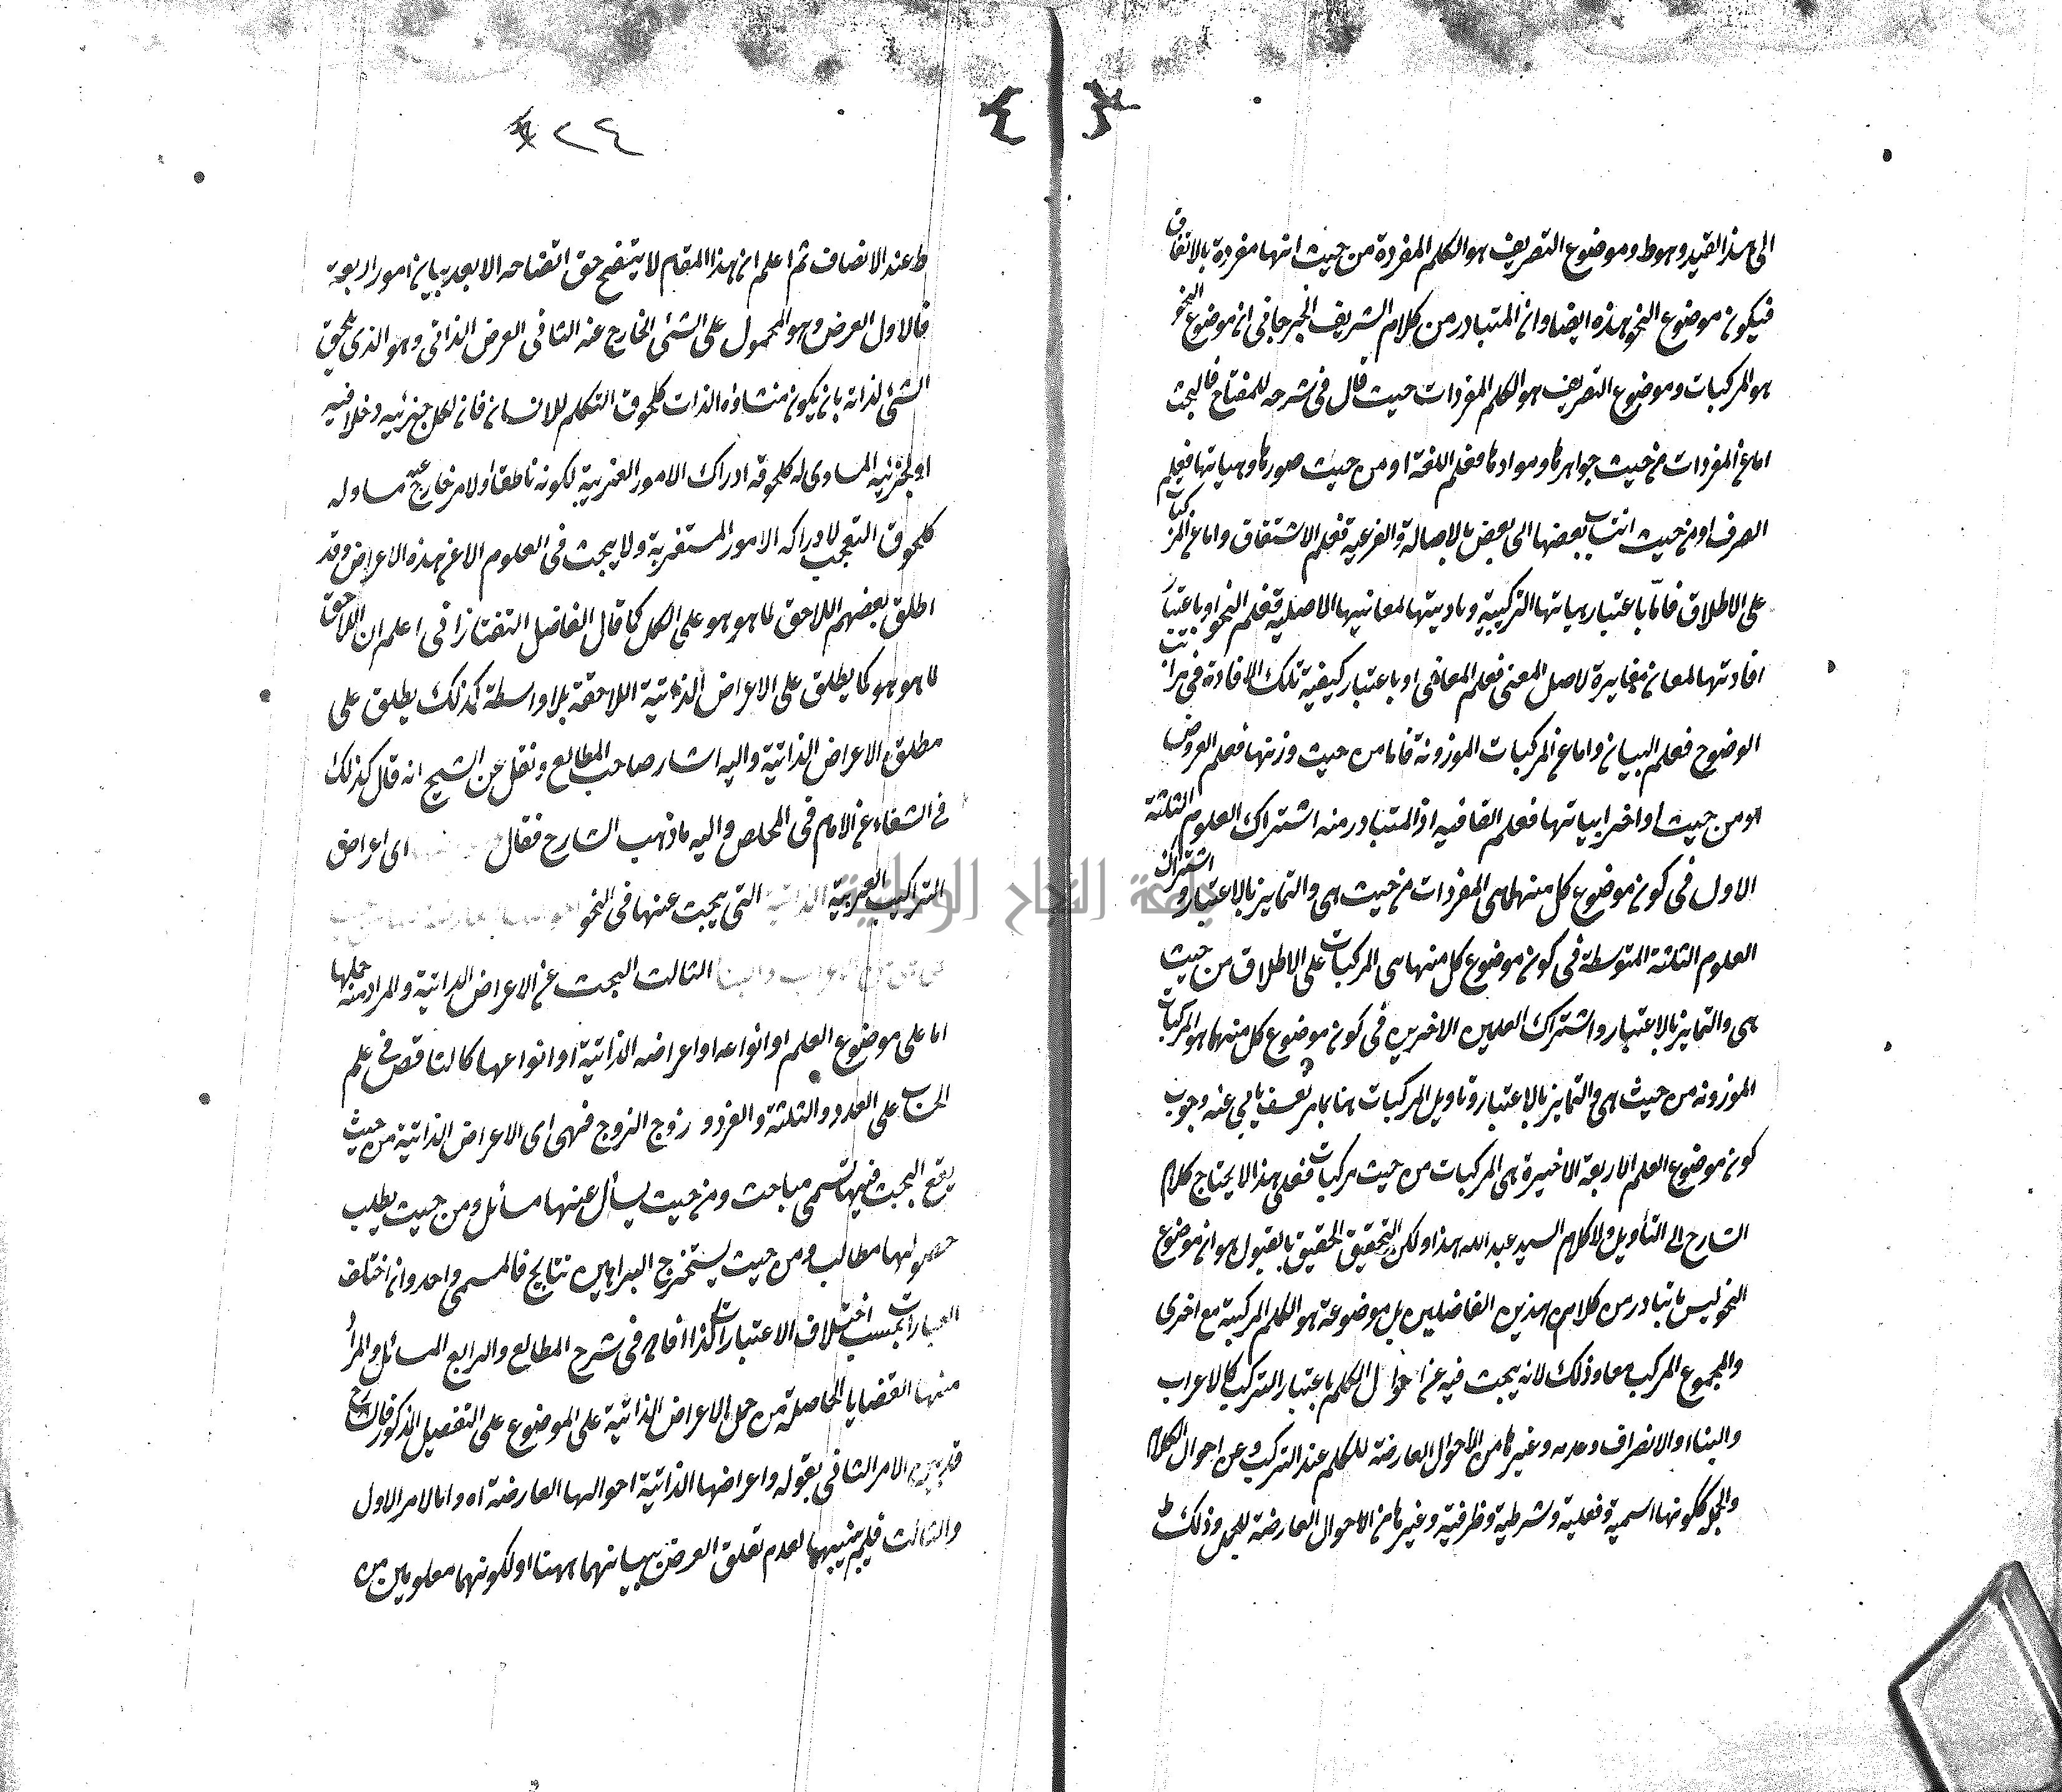 الى هذا القيد وهو ط وموضوع التصريف هو الكلم المفردة من حيث انها مفردة بالاتفاق
فيكون موضوع النحو هذه ايضا وان المتبادر من كلام الشريف الجرجانى ان موضوع النحو
هو المركبات وموضوع التصريف هو الكلم المفردات حيث قال فى شرحه للمفتاح فالبحث
اما عن المفردات من حيث جواهرها وموادها فعلم اللغة او من حيث صورها وهياتها فعلم
الصرف او من حيث انتساب بعضها الى بعض بالاصالة والفرعية فعلم الاشتقاق واما عن المركبات
على الاطلاق فاما باعتبار هياتها التركيبية وتاديتها لمعانيها الاصلية فعلم النحو او باعتبار
افادتها لمعان مغايرة لاصل المعنى فعلم المعانى او باعتبار كيفية تلك الافادة فى مراتب
الوضوح فعلم البيان واما عن المركبات الموزونة فاما من حيث وزنها فعلم العروض
او من حيث اواخر ابياتها فعلم القافيه اذ المتبادر منه اشتراك العلوم الثلثة
الاول فى كون موضوع كل منها هى المفردات من حيث هى والتمايز بالاعتبار واشتراك
العلوم الثلثة المتوسطة فى كون موضوع كل منها هى المركبات على الاطلاق من حيث
هى والتمايز بالاعتبار واشتراك العلمين الاخيرين فى كون موضوع كل منهما هو المركبات
الموزونة من حيث هى والتمايز بالاعتبار وتاويل المركبات هنا بما مر تعسف يابى عنه وجوب
كون موضوع العلم الاربعة الاخيرة هى المركبات من حيث مركبات فعلى هذا لا يحتاج كلام
الشارح الى التأويل ولا كلام السيد عبد الله هذا ولكن التحقيق الحقيق بالقبول هو ان موضوع
النحو ليس ما تبادر من كلام هذين الفاضلين بل موضوعة هو الكلم المركبة مع اخرى
والمجموع المركب معا وذلك لانه يبحث فيه عن احوال الكلم باعتبار التركيب كالاعراب
والبناء والانصراف وعدمه وغيرها من الاحوال العارضة للكلم عند التركيب وعن احوال الكلام
والجمل ككونها اسمية وفعلية وشرطية وظرفية وغيرها من الاحوال العارضة للجمل وذلك ظ
٢٤
ط عند الانصاف ثم اعلم ان هذا المقام لا يتضح حق اتضاحه الا بعد بيان امور اربعة
فالاول العرض وهو المحمول على الشئ الخارج عنه الثانى العرض الذاتى وهو الذى يلحق
الشئ لذاته بان يكون منشاؤه الذات كلحوق التكلم للانسان فان لكل جزئيه دخلا فيه
او لجزئيه المساوى له كلحوقه ادراك الامور الغريبة لكونه ناطقا ولامر خارج عنه مساو له
كلحوق التعجب لادراكه الامور المستغربة ولا يبحث فى العلوم الا عن هذه الاعراض وقد
اطلق بعضهم اللاحق لما هو هو على الكل كما قال الفاضل التفتازانى اعلم ان اللاحق
لما هو هو كما يطلق على الاعراض الذاتية اللاحقة بلا واسطة كذلك يطلق على
مطلق الاعراض الذاتية واليه اشار صاحب المطالع ونقل عن الشيخ انه قال كذلك
فى الشفاء عن الامام فى الملخص واليه ما ذهب الشارح فقال اى اعراض
التراكيب العربية الذاتية التى يبحث عنها فى النحو
الثالث البحث عن الاعراض الذاتية والمراد منه حملها
اما على موضوع العلم او انواعه او اعراضه الذاتية او انواعها كالناقص فى علم
الحساب على العدد والثلثة والفرد وزوج الزوج فهى اى الاعراض الذاتية من حيث
يقع البحث فيها تسمى مباحث ومن حيث يسأل عنها مسائل ومن حيث يطلب
حصولها مطالب ومن حيث يستخرج البراهين نتايج فالمسمى واحد وان اختلف
العبارات بحسب اختلاف الاعتبارات كذا افاده فى شرح المطالع والرابع المسائل والمراد
منها القضايا الحاصلة من حمل الاعراض الذاتية على الموضوع على التفصيل المذكور فالشارح
قد بين الامر الثانى بقوله واعراضها الذاتية احوالها العارضة اه واما الامر الاول
والثالث فلم يبينهما لعدم تعلق الغرض ببيانهما ههنا او لكونهما معلومين من
جامعة النجاح الوطنية